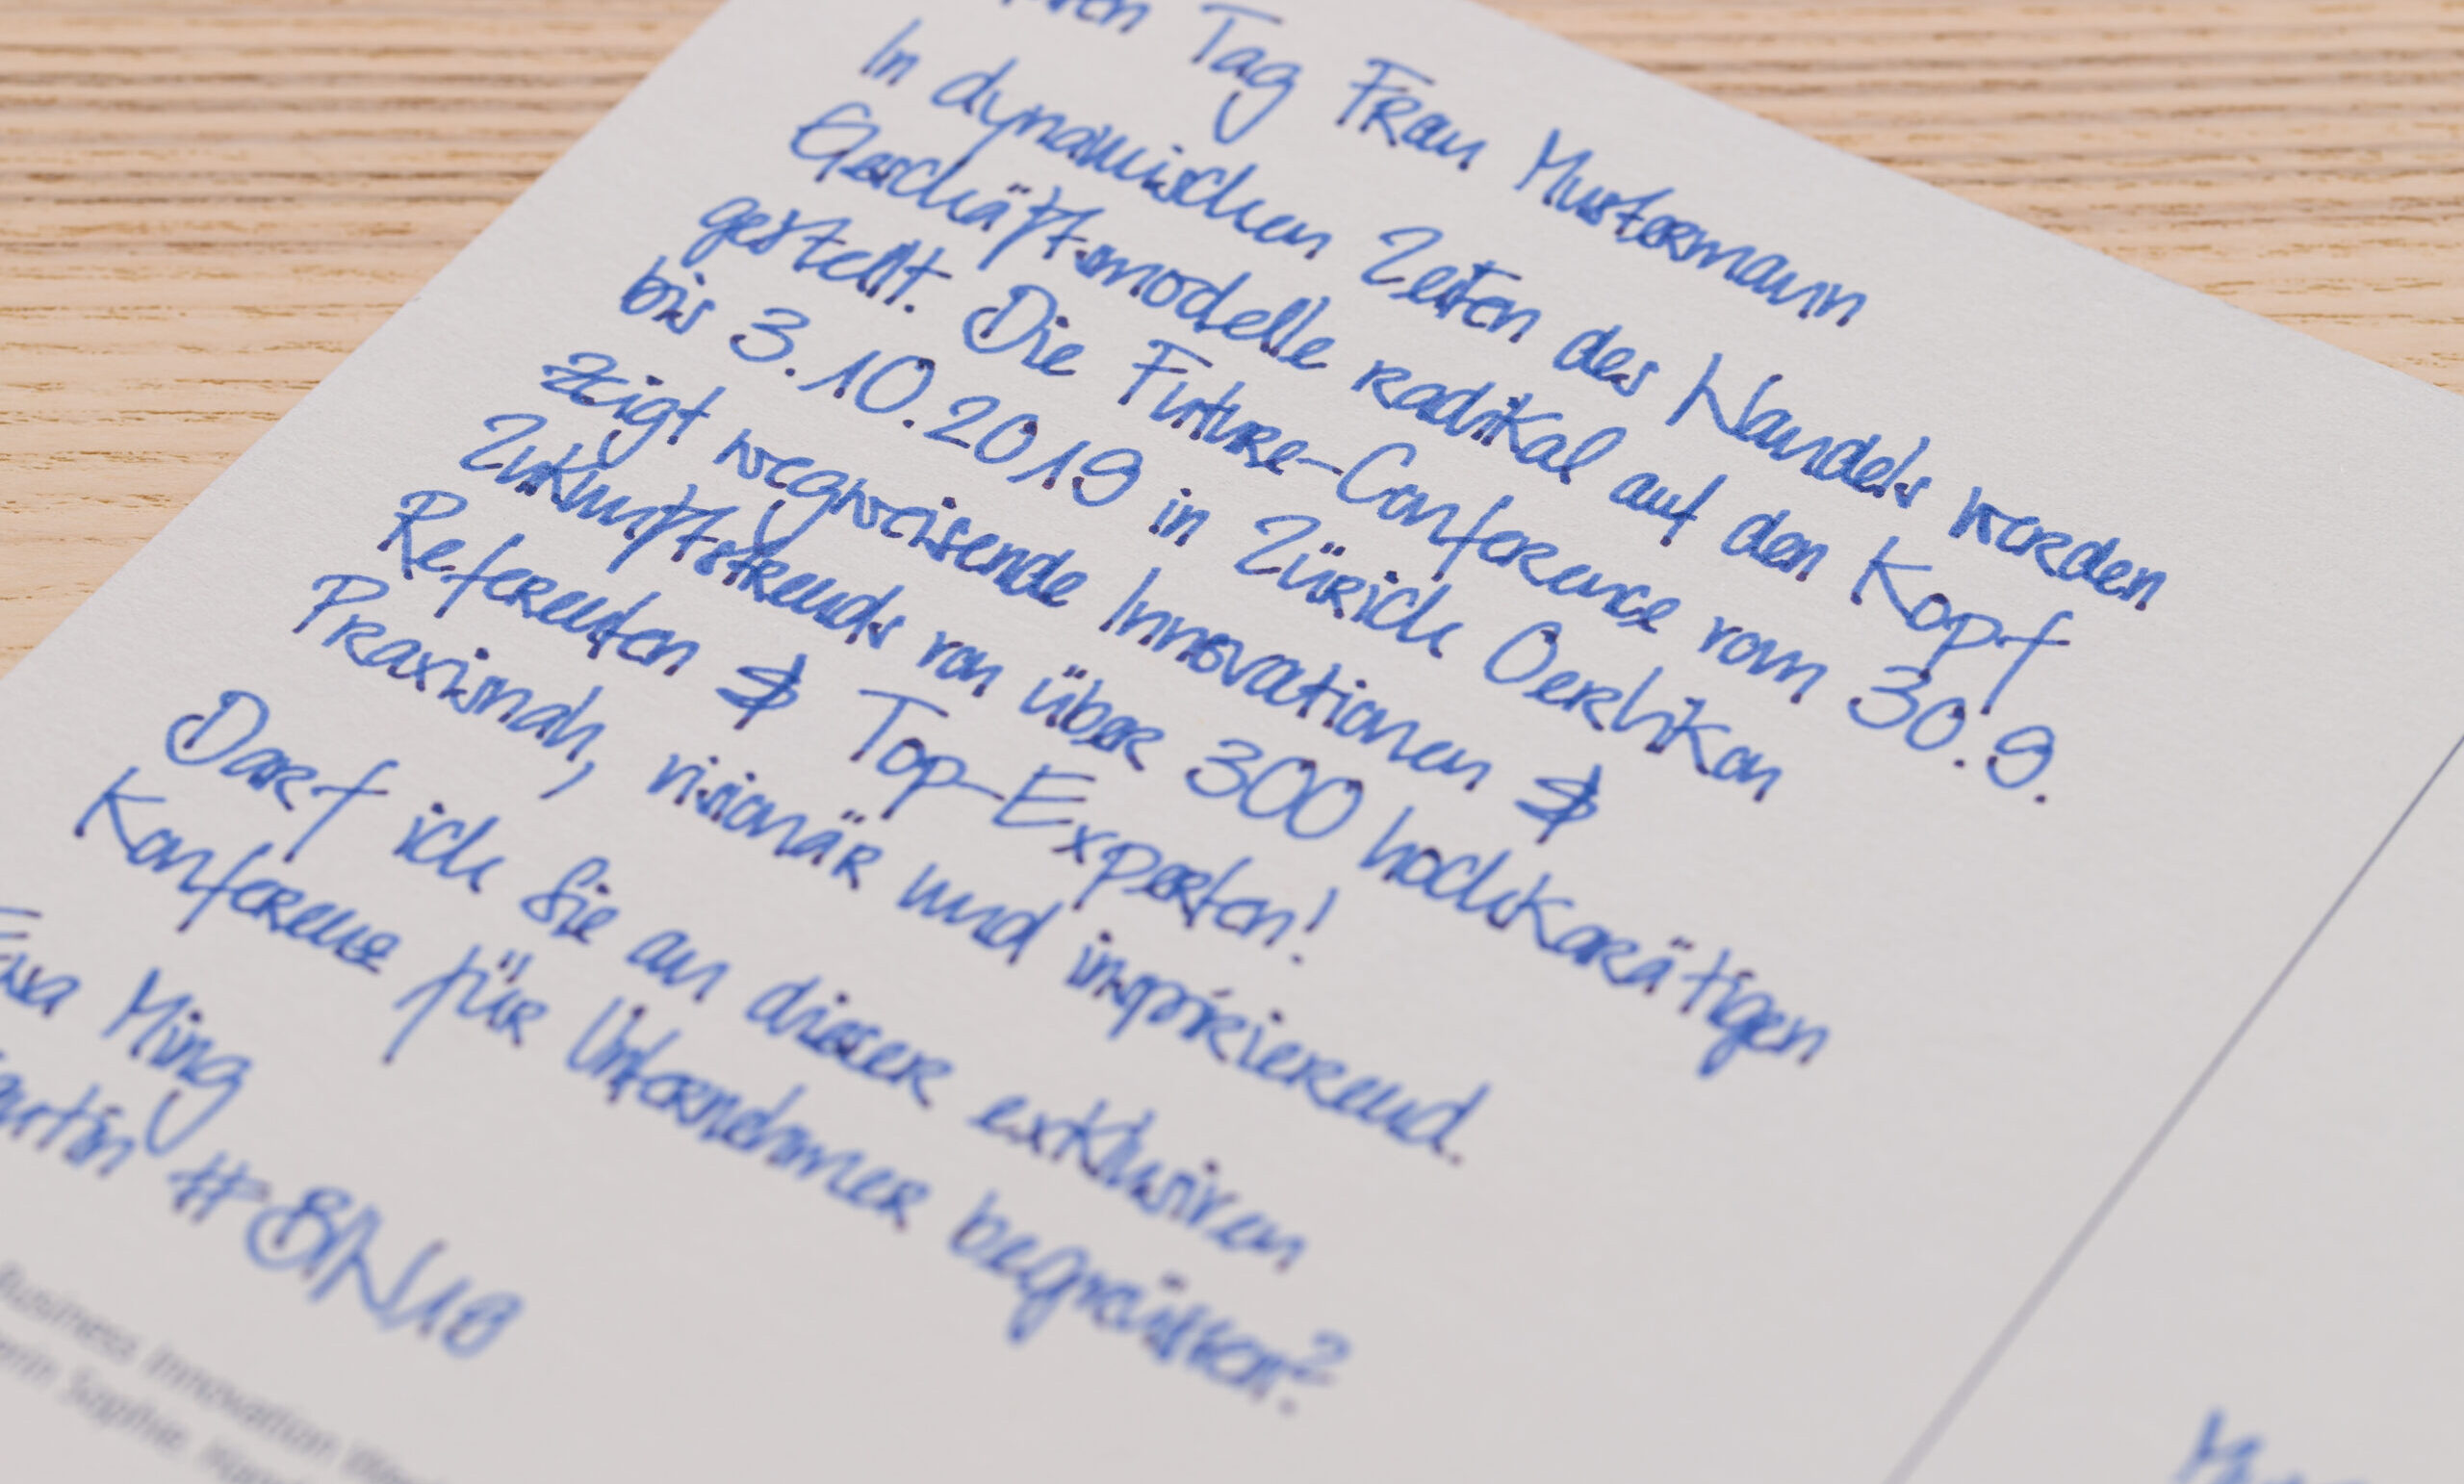 Tag Frau Mustermann
In dynamischen Zeiten des Wandels werden
Geschäftsmodelle radikal auf den Kopf
gestellt. Die Future-Conference vom 30.9.
bis 3.10.2019 in Zürich Oerlikon
zeigt wegweisende Innovationen &
Zukunftstrends von über 300 hochkarätigen
Referenten & Top-Experten!
Praxisnah, visionär und inspirierend.
Darf ich Sie an dieser exklusiven
Konferenz für Unternehmer begrüssen?
Ming
#BIN19
Business Innovation